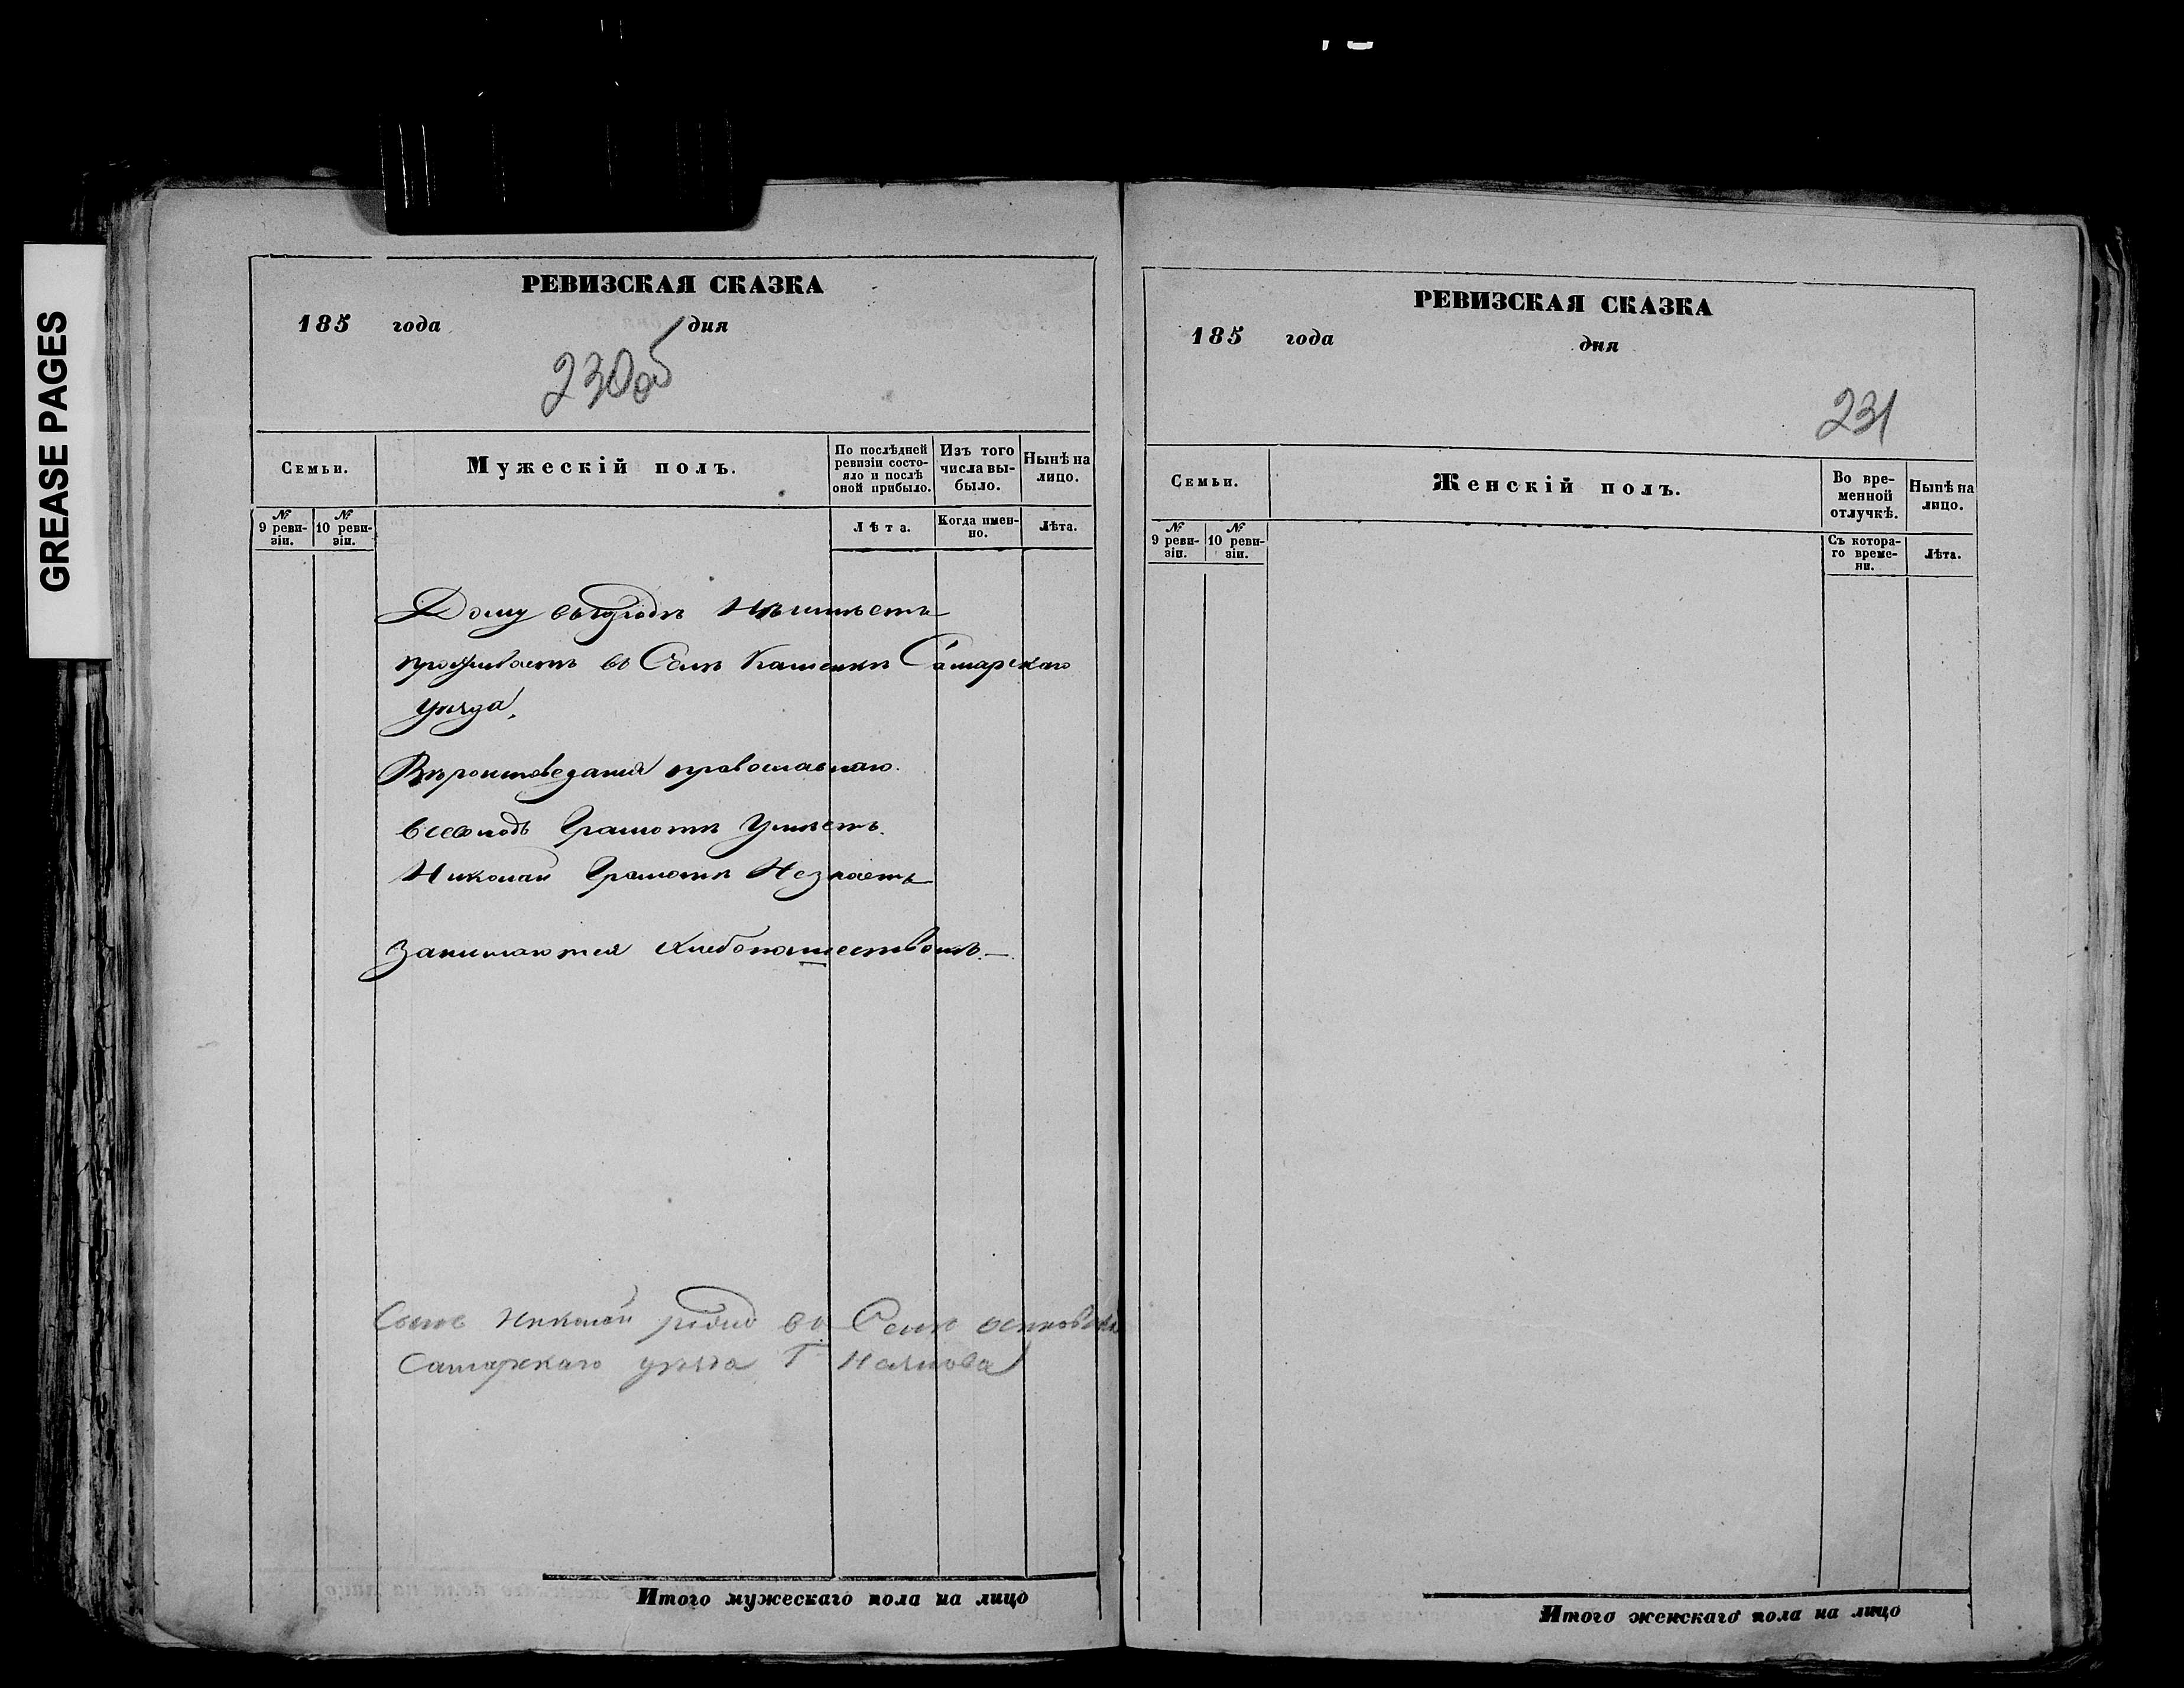 GREASE PAGES
РЕВИЗСКАЯ СКАЗКА
185 года дня
230об
Семьи.
Мужескій полъ.
По послѣдней ревизіи состояло и послѣ оной прибыло.
Изъ того числа выбыло.
Нынѣ на лицо.
№ 9 ревизіи.
№ 10 ревизіи.
Лѣта.
Когда именно.
Лѣта.
Дому въ городѣ Неимѣетъ
проживаетъ во Селѣ Каменкѣ Самарскаго
уѣзда.
Вѣроисповеданія православнаго.
Всеволодъ Грамотѣ Умѣетъ.
Николай Грамотѣ Незнаетъ
Занимаются хлебопашествомъ.—
Сынъ Николай во Селѣ
Самарскаго уѣзда Г
Итого мужескаго пола на лицо
РЕВИЗСКАЯ СКАЗКА
185 года дня
231
Семьи.
Женскій полъ.
Во временной отлучкѣ.
Нынѣ на лицо.
№ 9 ревизіи.
№ 10 ревизіи.
Съ котораго времени.
Лѣта.
Итого женскаго пола на лицо